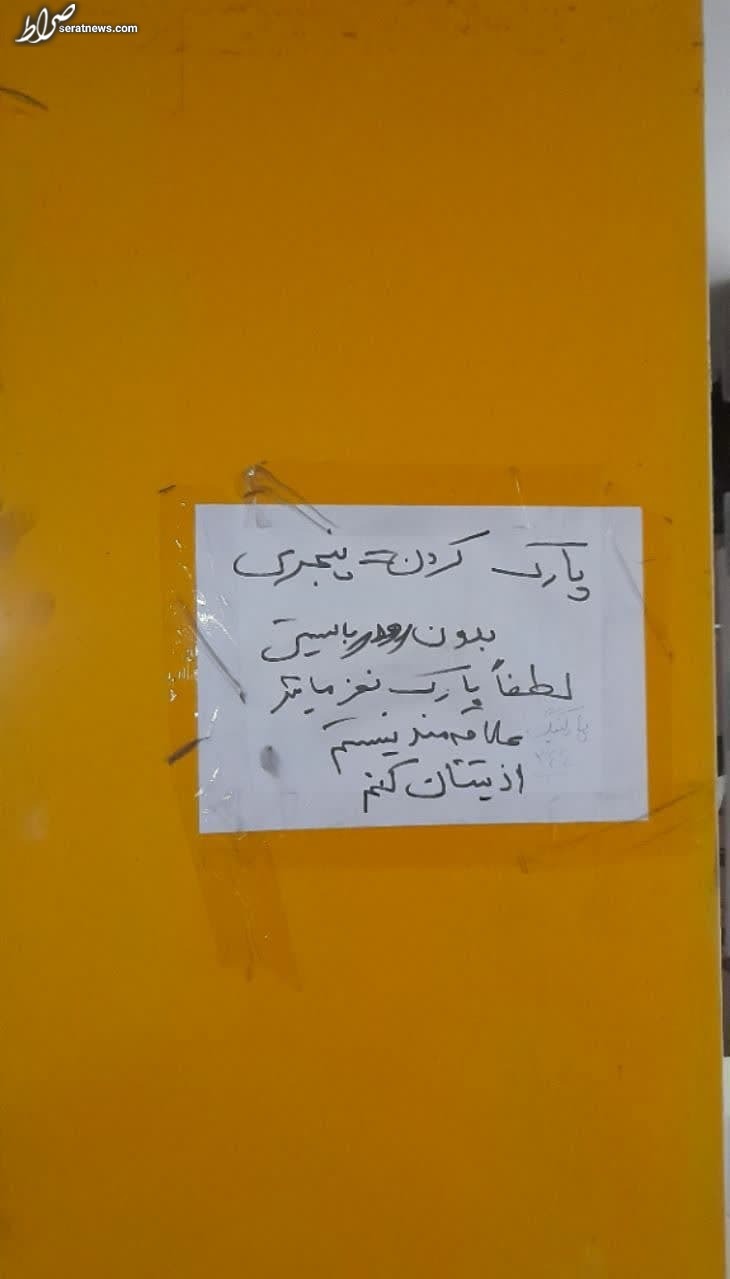 صراط
seratnews.com
پارک کردن = پنچری
بدون رودربایستی
لطفاً پارک نفرمایید
علاقه‌مند نیستم
اذیتتان کنم